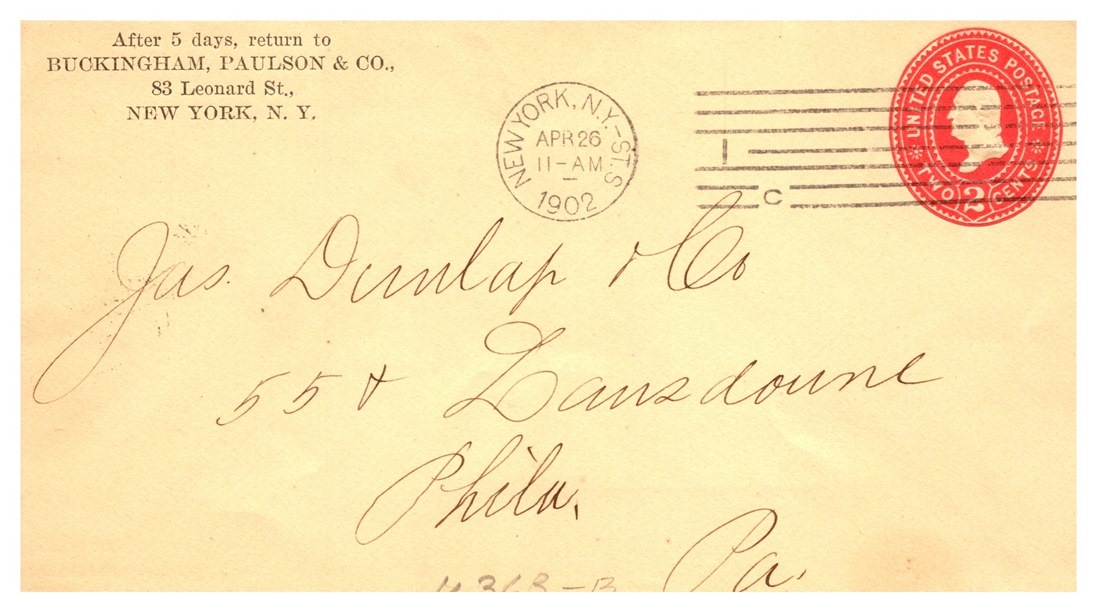 After 5 days, return to
BUCKINGHAM, PAULSON & CO.,
83 Leonard St.,
NEW YORK, N. Y.
NEW YORK, N.Y.-STA.S
APR 26
11-AM
1902
1
C
UNITED STATES POSTAGE
TWO 2 CENTS
Jas. Dunlap & Co
55 & Lansdowne
Phila.
Pa.